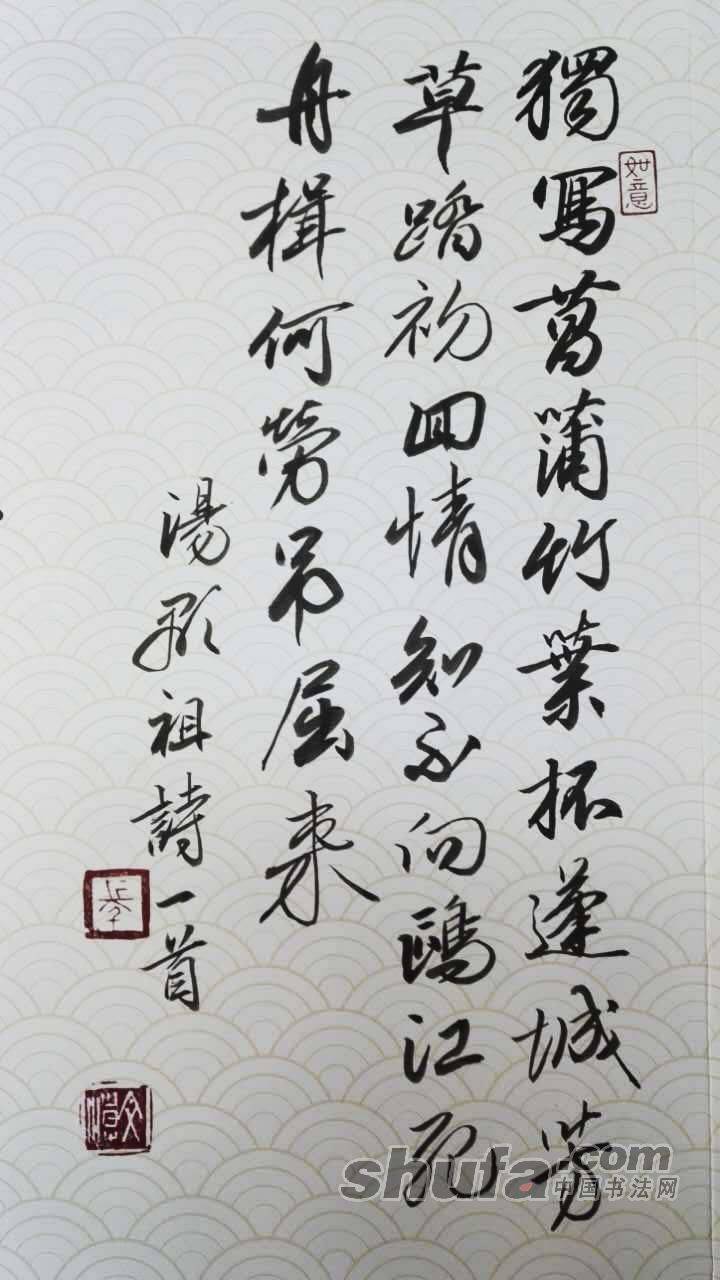 獨寫菖蒲竹葉杯蓬城芳
草踏初回情知不向鷗江死
舟楫何勞吊屈来
湯顯祖詩一首
如意
shufa.com
中国书法网